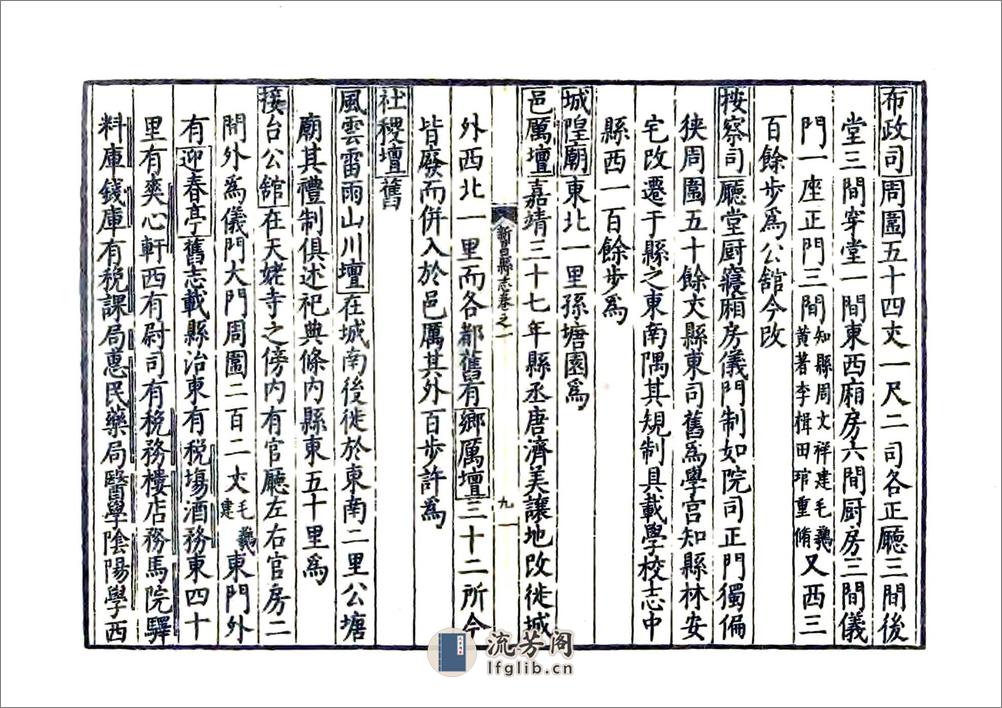 布政司周圍五十四丈一尺二司各正廳三間後
堂三間穿堂一間東西廂房六間厨房三間儀
門一座正門三間知縣周文祥建毛鵷黄著李楫田琯重脩又西三
百餘步爲公舘今改
按察司廳堂厨寢廂房儀門制如院司正門獨偏
狹周圍五十餘丈縣東司舊爲學宫知縣林安
宅改遷于縣之東南隅其規制具載學校志中
縣西一百餘步爲
城隍廟東北一里孫塘園爲
邑厲壇嘉靖三十七年縣丞唐濟美讓地改徙城
新昌縣志卷之一
九
外西北一里而各都舊有鄉厲壇三十二所今
皆廢而併入於邑厲其外百步許爲
社稷壇舊
風雲雷雨山川壇在城南後徙於東南二里公塘
廟其禮制俱述祀典條内縣東五十里爲
接台公舘在天姥寺之傍内有官廳左右官房二
間外爲儀門大門周圍二百二丈毛鵷建東門外
有迎春亭舊志載縣治東有税場酒務東四十
里有爽心軒西有尉司有税務樓店務馬院驛
料庫錢庫有税課局惠民藥局醫學陰陽學西
流芳阁
lfglib.cn